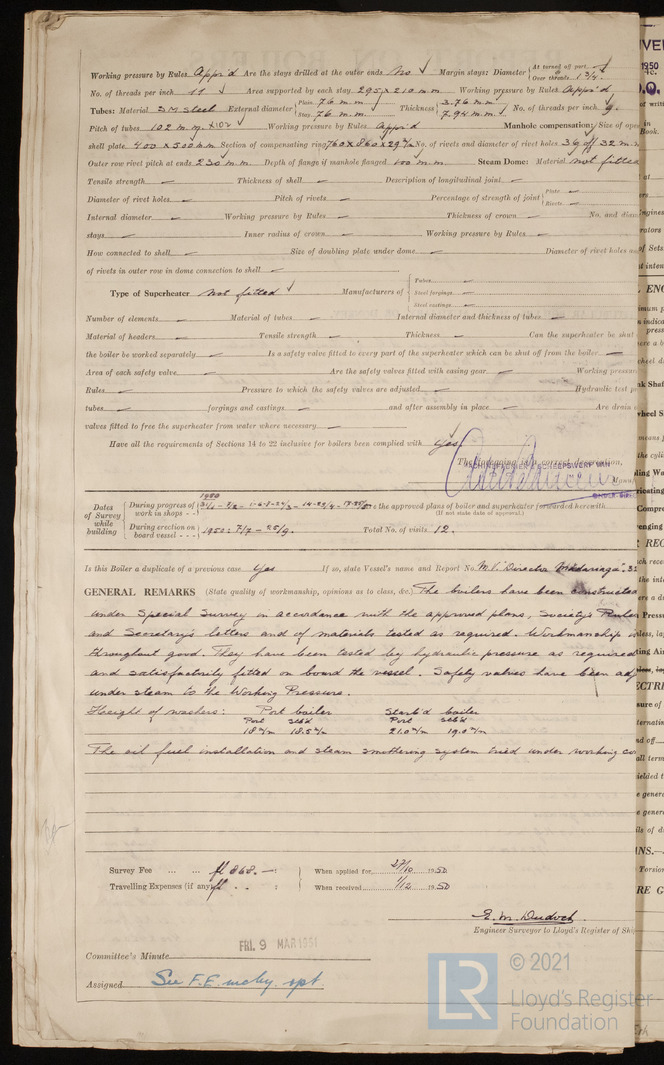 Working pressure by Rules Appr'd Are the stays drilled at the outer ends No Margin stays: Diameter { At turned off part Over threads 1 3/4"
No. of threads per inch 11 Area supported by each stay 295 x 210 mm Working pressure by Rules Appr'd
Tubes: Material S M Steel External diameter { Plain 76 m.m. Stay 76 m.m. Thickness { 3.76 m.m. 7.94 m.m. No. of threads per inch 9.
Pitch of tubes 102 m.m. x 102 Working pressure by Rules Appr'd Manhole compensation: Size of
shell plate 400 x 500 m.m. Section of compensating ring 760 x 860 x 29 No. of rivets and diameter of rivet holes 36 off 32 m.
Outer row rivet pitch at ends 230 m.m. Depth of flange if manhole flanged 100 m.m. Steam Dome: Material not fitted
Tensile strength Thickness of shell Description of longitudinal joint
Diameter of rivet holes Pitch of rivets Percentage of strength of joint { Plate Rivets
Internal diameter Working pressure by Rules Thickness of crown No. and
stays Inner radius of crown Working pressure by Rules
How connected to shell Size of doubling plate under dome Diameter of rivet holes
of rivets in outer row in dome connection to shell
Type of Superheater Not fitted Manufacturers of { Tubes Steel forgings Steel castings
Number of elements Material of tubes Internal diameter and thickness of tubes
Material of headers Tensile strength Thickness Can the superheater be shut
the boiler be worked separately Is a safety valve fitted to every part of the superheater which can be shut off from the boiler
Area of each safety valve Are the safety valves fitted with easing gear Working
Rules Pressure to which the safety valves are adjusted Hydraulic test
tubes forgings and castings and after assembly in place Are drain
valves fitted to free the superheater from water where necessary
Have all the requirements of Sections 14 to 22 inclusive for boilers been complied with Yes
The foregoing is a correct description,
Dates of Survey while building { During progress of work in shops - - 1950 Are the approved plans of boiler and superheater forwarded herewith
(If not state date of approval.)
During erection on board vessel - - - 1950: 7/7 - 25/9. Total No. of visits 12.
Is this Boiler a duplicate of a previous case Yes If so, state Vessel's name and Report No. M.V. "Director
GENERAL REMARKS (State quality of workmanship, opinions as to class, &c.) The boilers have been constructed
under Special Survey in accordance with the approved plans, Society's Rules
and Secretary's letters and of materials tested as required. Workmanship is
throughout good. They have been tested by hydraulic pressure as required
and satisfactorily fitted on board the vessel. Safety valves have been adj
under steam to the Working Pressure.
Height of washers: Port boiler Starb'd boiler
Port Stb'd Port Stb'd
18 m/m 18.5 m/m 21.0 m/m 19.0 m/m
The oil fuel installation and steam smothering system tried under working co
Survey Fee ... ... fl 868.— : When applied for 27/10 1950
Travelling Expenses (if any) fl . . : When received 1/12 1950
Engineer Surveyor to Lloyd's Register of
FRI. 9 MAR 1951
Committee's Minute
Assigned See F.E. mchy. rpt.
© 2021
LR Lloyd's Register
Foundation